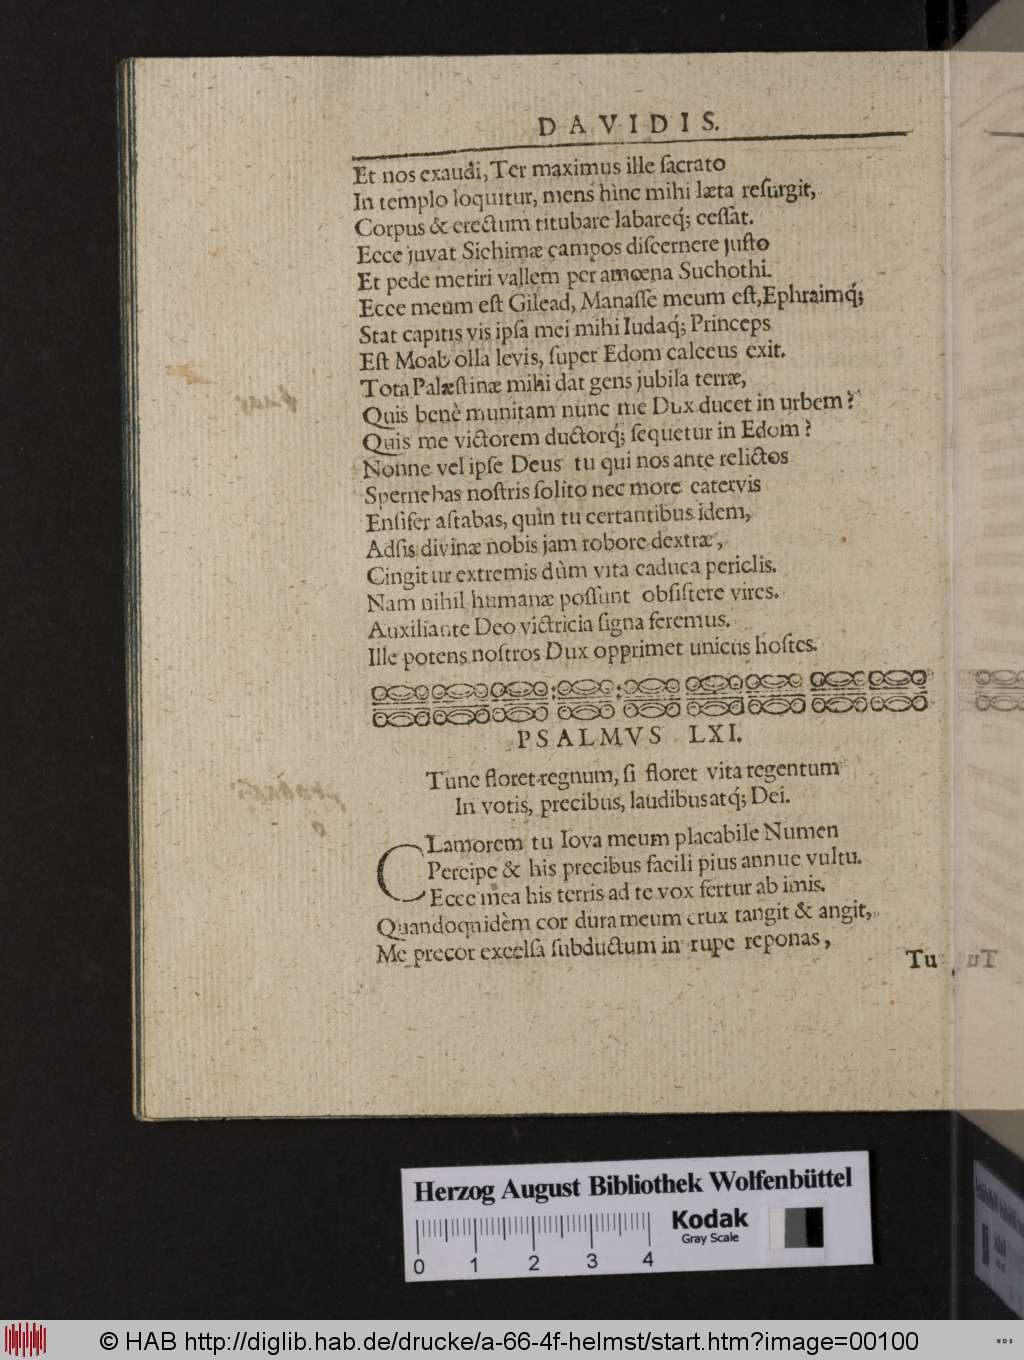 DAVIDIS.
Et nos exaudi, Ter maximus ille ſacrato
In templo loquitur, mens hinc mihi læta reſurgit,
Corpus & erectum titubare labareq́; ceſſat.
Ecce juvat Sichimæ campos diſcernere juſto
Et pede metiri vallem per amœna Suchothi.
Ecce meum eſt Gilead, Manaſſe meum eſt, Ephraimq́;
Stat capitis vis ipſa mei mihi Iudaq́; Princeps
Eſt Moab olla levis, ſuper Edom calceus exit.
Tota Palæſtinæ mihi dat gens jubila terræ,
Quis benè munitam nunc me Dux ducet in urbem?
Quis me victorem ductorq́; ſequetur in Edom?
Nonne vel ipſe Deus tu qui nos ante relictos
Spernebas noſtris ſolito nec more catervis
Enſifer aſtabas, quìn tu certantibus idem,
Adſis divinæ nobis jam robore dextræ,
Cingitur extremis dùm vita caduca periclis.
Nam nihil humanæ poſſunt obſiſtere vires.
Auxiliante Deo victricia ſigna feremus.
Ille potens noſtros Dux opprimet unicus hoſtes.
PSALMVS LXI.
Tunc floret regnum, ſi floret vita regentum
In votis, precibus, laudibusatq́; Dei.
CLamorem tu Iova meum placabile Numen
Percipe & his precibus facili pius annue vultu.
Ecce mea his terris ad te vox fertur ab imis.
Quandoquidèm cor dura meum crux tangit & angit,
Me precor excelſa ſubductum in rupe reponas,
Tu
Herzog August Bibliothek Wolfenbüttel
Kodak
Gray Scale
0 1 2 3 4
© HAB http://diglib.hab.de/drucke/a-66-4f-helmst/start.htm?image=00100